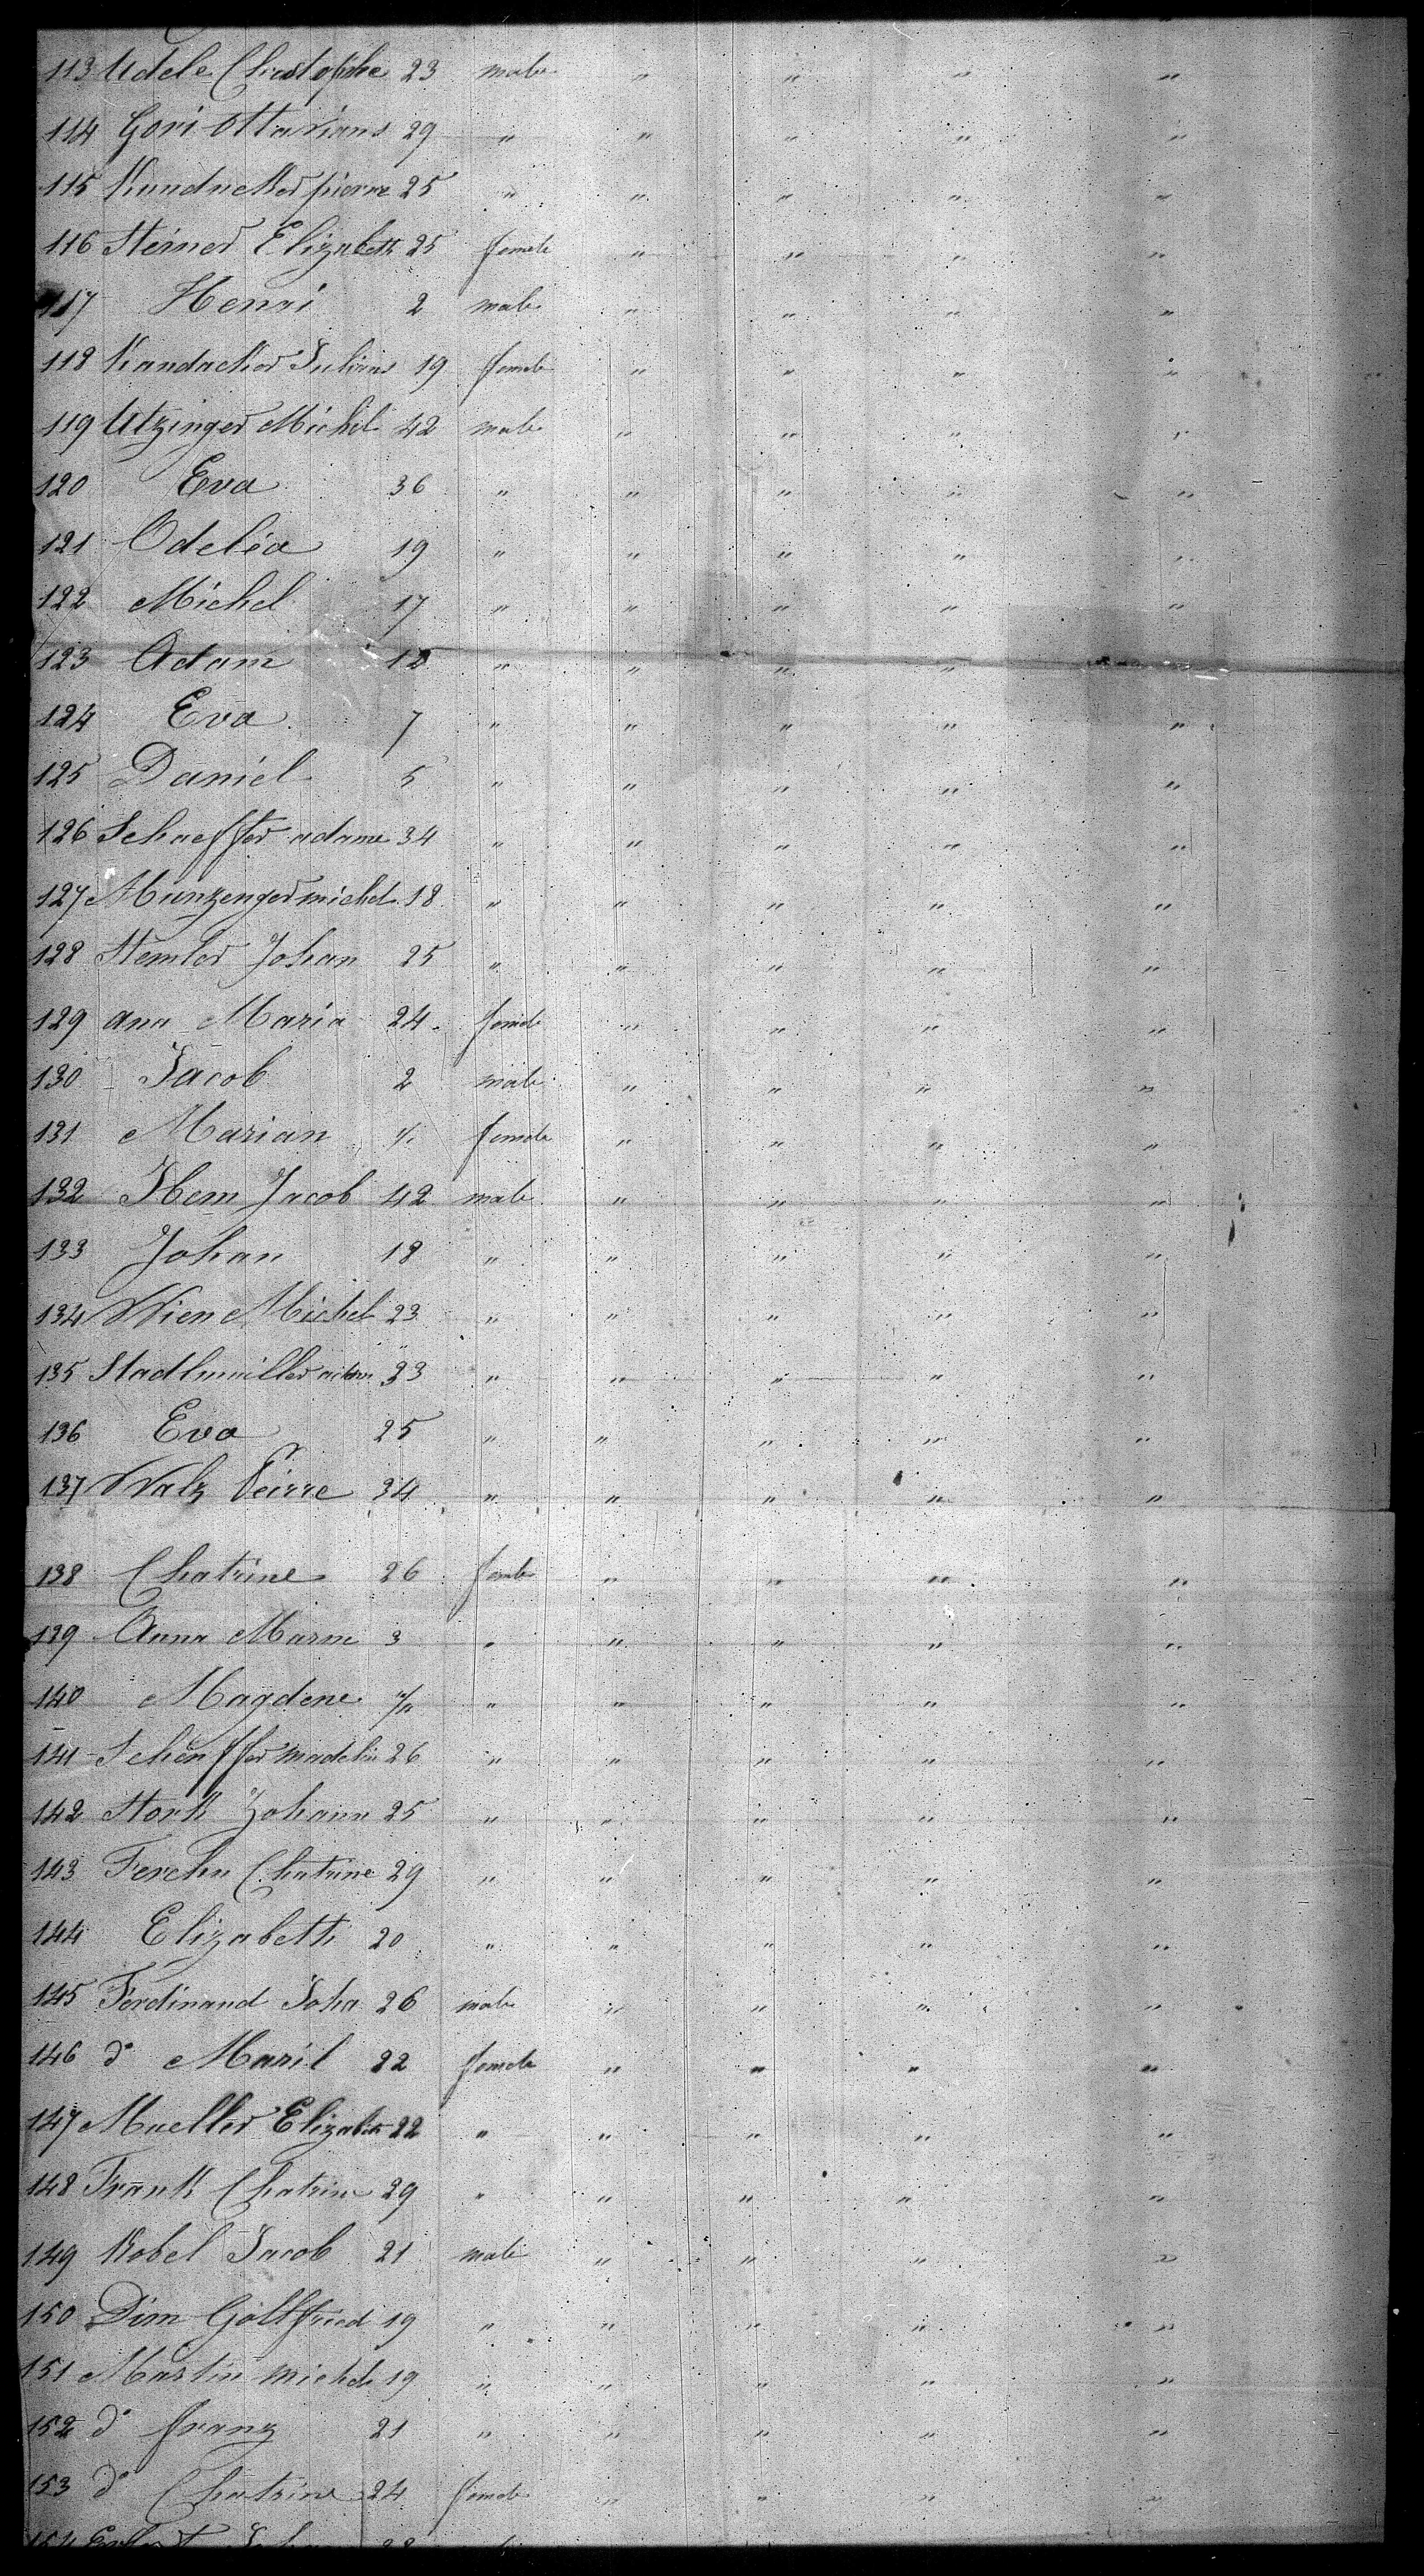 113 Udele Christophe 23 male " " " "
114 Gori Ottavians 29 " " " " "
115 Kundacker pierre 25 " " " " "
116 Steiner Elizabeth 25 female " " " "
117 Henri 2 male " " " "
118 Kandacker Julians 19 female " " " "
119 Utzinger Michel 42 male " " " "
120 Eva 36 " " " " "
121 Odelia 19 " " " " "
122 Michel 17 " " " " "
123 Adam " " " " "
124 Eva 7 " " " " "
125 Daniel 5 " " " " "
126 Schaeffer adame 34 " " " " "
127 Munzenger michel 18 " " " " "
128 Stemler Johan 25 " " " " "
129 ana Maria 24 female " " " "
130 Jacob 2 male " " " "
131 Marian female " " " "
132 Hem Jacob 42 male " " " "
133 Johan 18 " " " " "
134 Wien Michel 23 " " " " "
135 Stadlmuller 23 " " " " "
136 Eva 25 " " " " "
137 Walz Peirre 34 " " " " "
138 Chatrine 26 female " " " "
139 Anna Marie 3 " " " " "
140 Magdene " " " " "
141 Scheffer madelin 26 " " " " "
142 Stork Johann 25 " " " " "
143 Ferchn Chatrine 29 " " " " "
144 Elizabeth 20 " " " " "
145 Ferdinand Joha 26 male " " " "
146 do Maril 22 female " " " "
147 Mueller Elizabeth 22 " " " " "
148 Frank Chatrine 29 " " " " "
149 Kobel Jacob 21 male " " " "
150 Dim Gottfried 19 " " " " "
151 Martin michel 19 " " " " "
152 do franz 21 " " " " "
153 do Chatrine 24 female " " " "
154